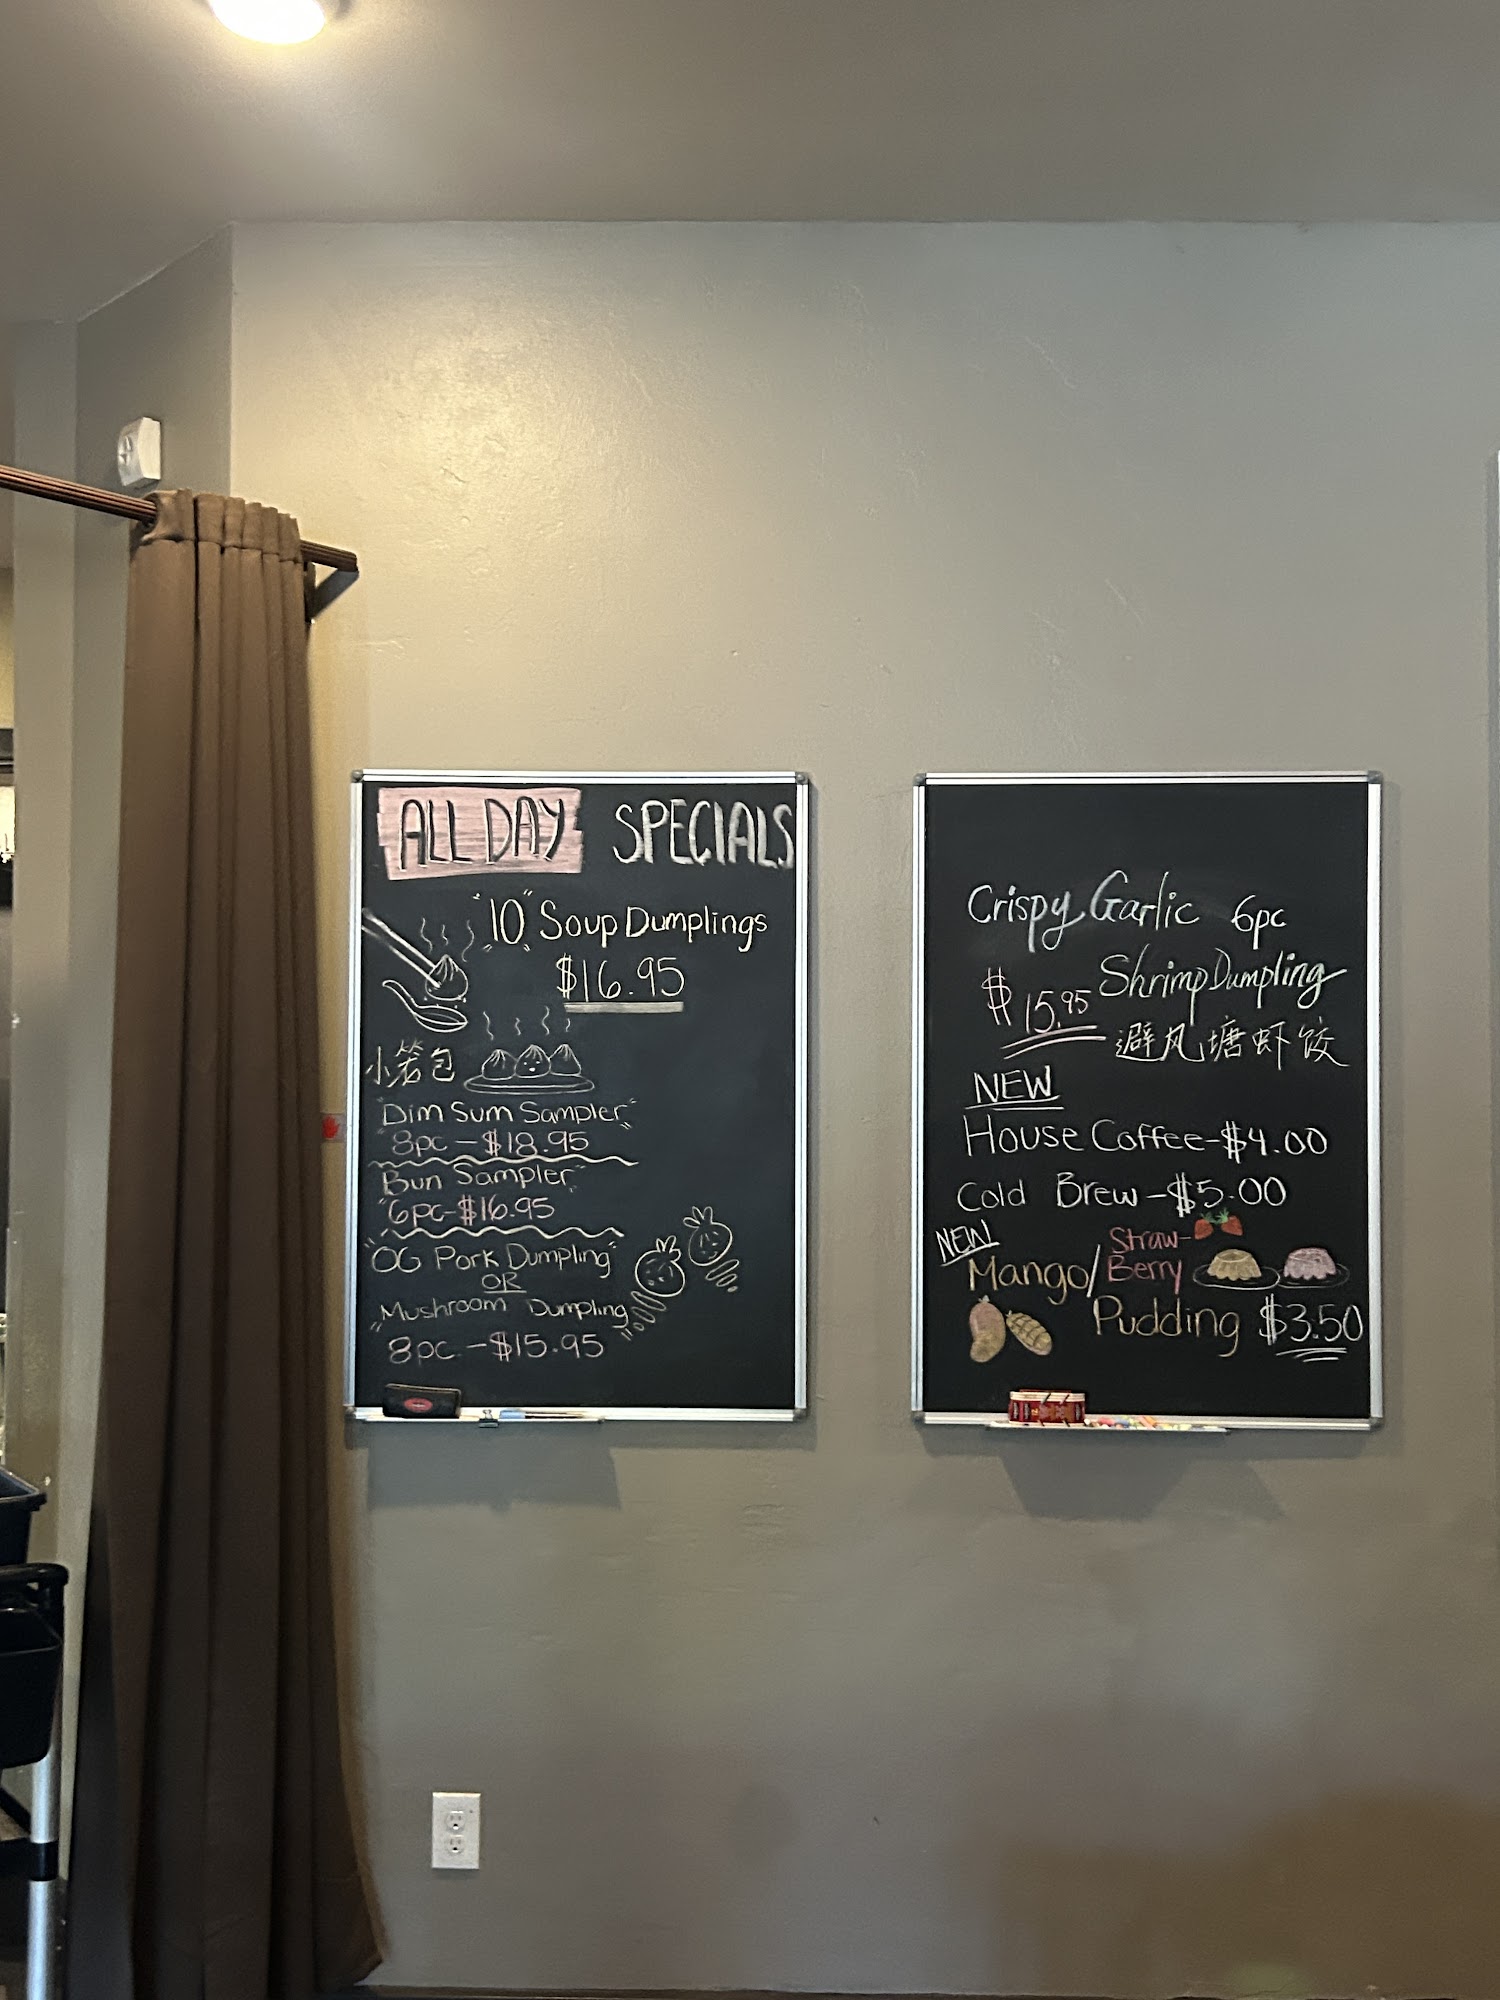 ALL DAY SPECIALS
"10" Soup Dumplings
$16.95
小笼包
"Dim Sum Sampler"
8pc - $18.95
Bun Sampler"
"6pc - $16.95
"OG Pork Dumpling"
OR
"Mushroom Dumpling"
8pc - $15.95
Crispy Garlic 6pc
$15.95 Shrimp Dumpling
避风塘虾饺
NEW
House Coffee - $4.00
Cold Brew - $5.00
NEW
Mango/Straw-
Berry
Pudding $3.50